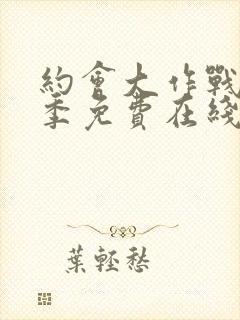 約會大作戰
季免費在綫
葉輕愁